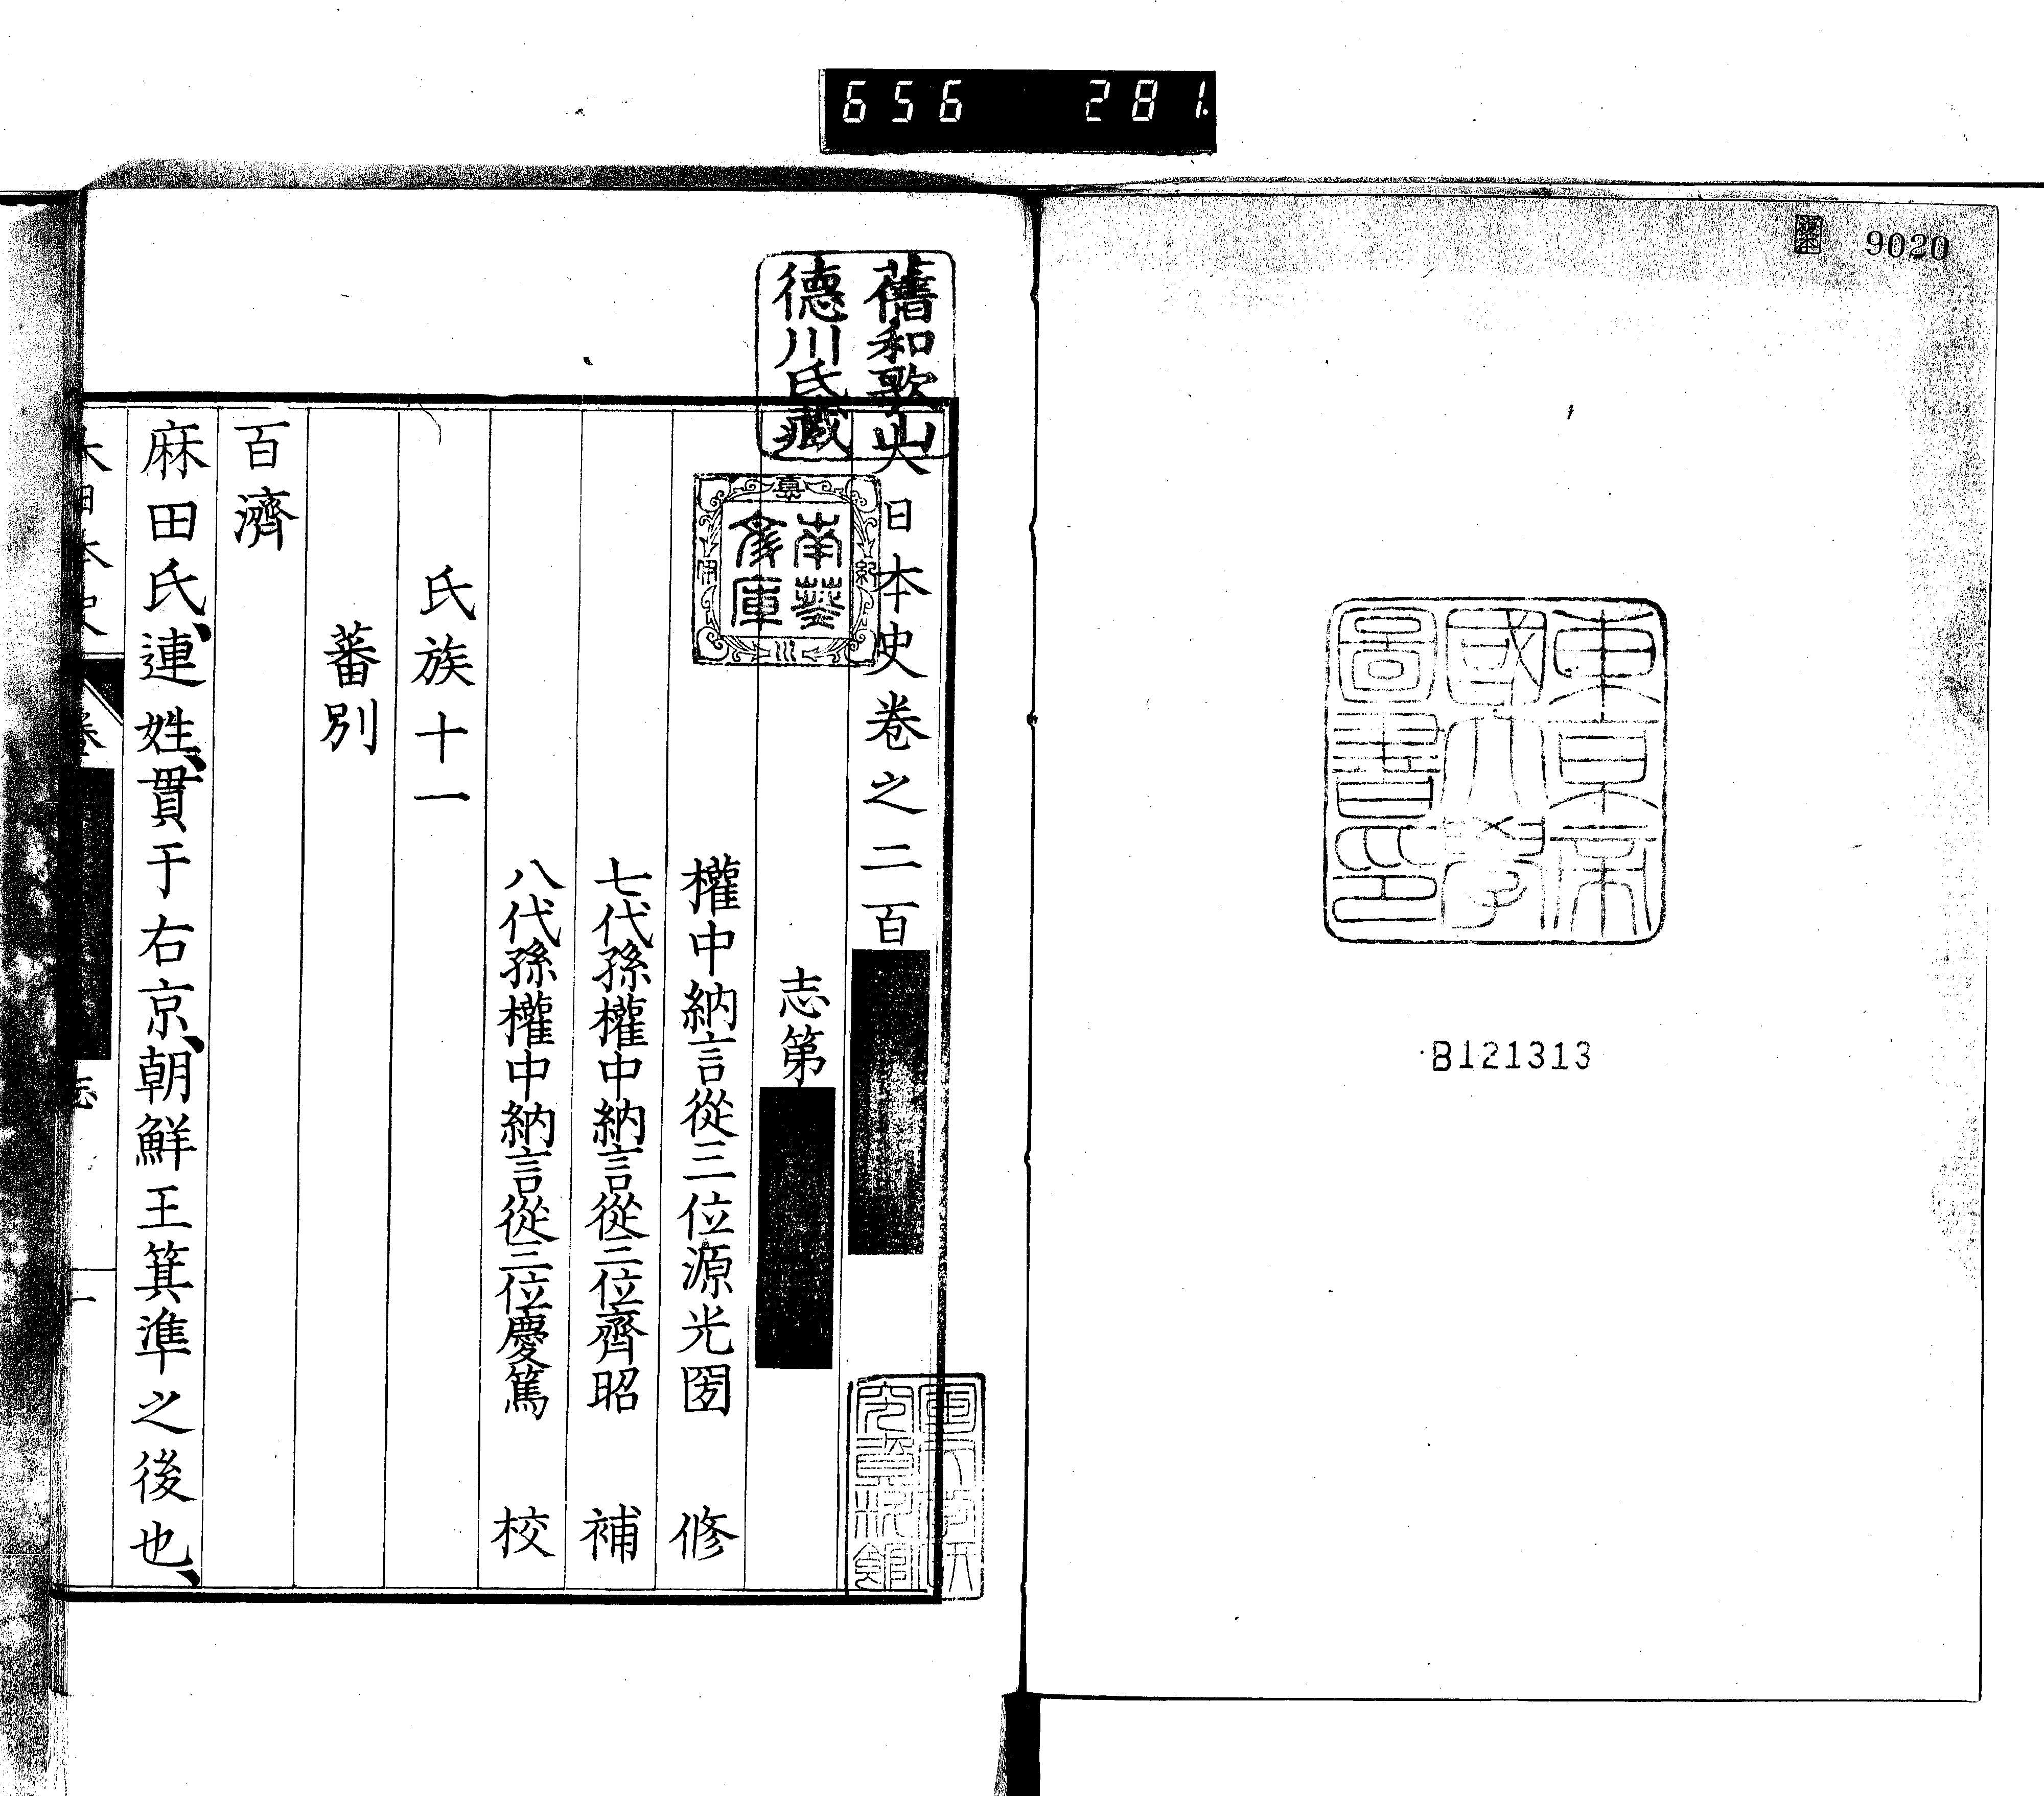 656 281
9020
東京帝
國大學
圖書印
B121313
舊和歌山
德川氏藏
南葵
文庫
大日本史卷之二百
志第
權中納言從三位源光圀 修
七代孫權中納言從三位齊昭 補
八代孫權中納言從三位慶篤 校
氏族十一
蕃別
百濟
麻田氏、連姓、貫于右京、朝鮮王箕準之後也、